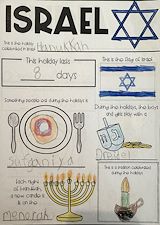 ISRAEL
This is the holiday
celebrated in Israel
Hanukkah
This holiday lasts
8 days
This is the flag of Israel
Something people eat during this holiday is
Sufganiya
During this holiday, the boys
and girls play with a
Dreidel
Each night
of Hanukkah,
a new candle
is lit on the
menorah
This is a tradition celebrated
during the holidays